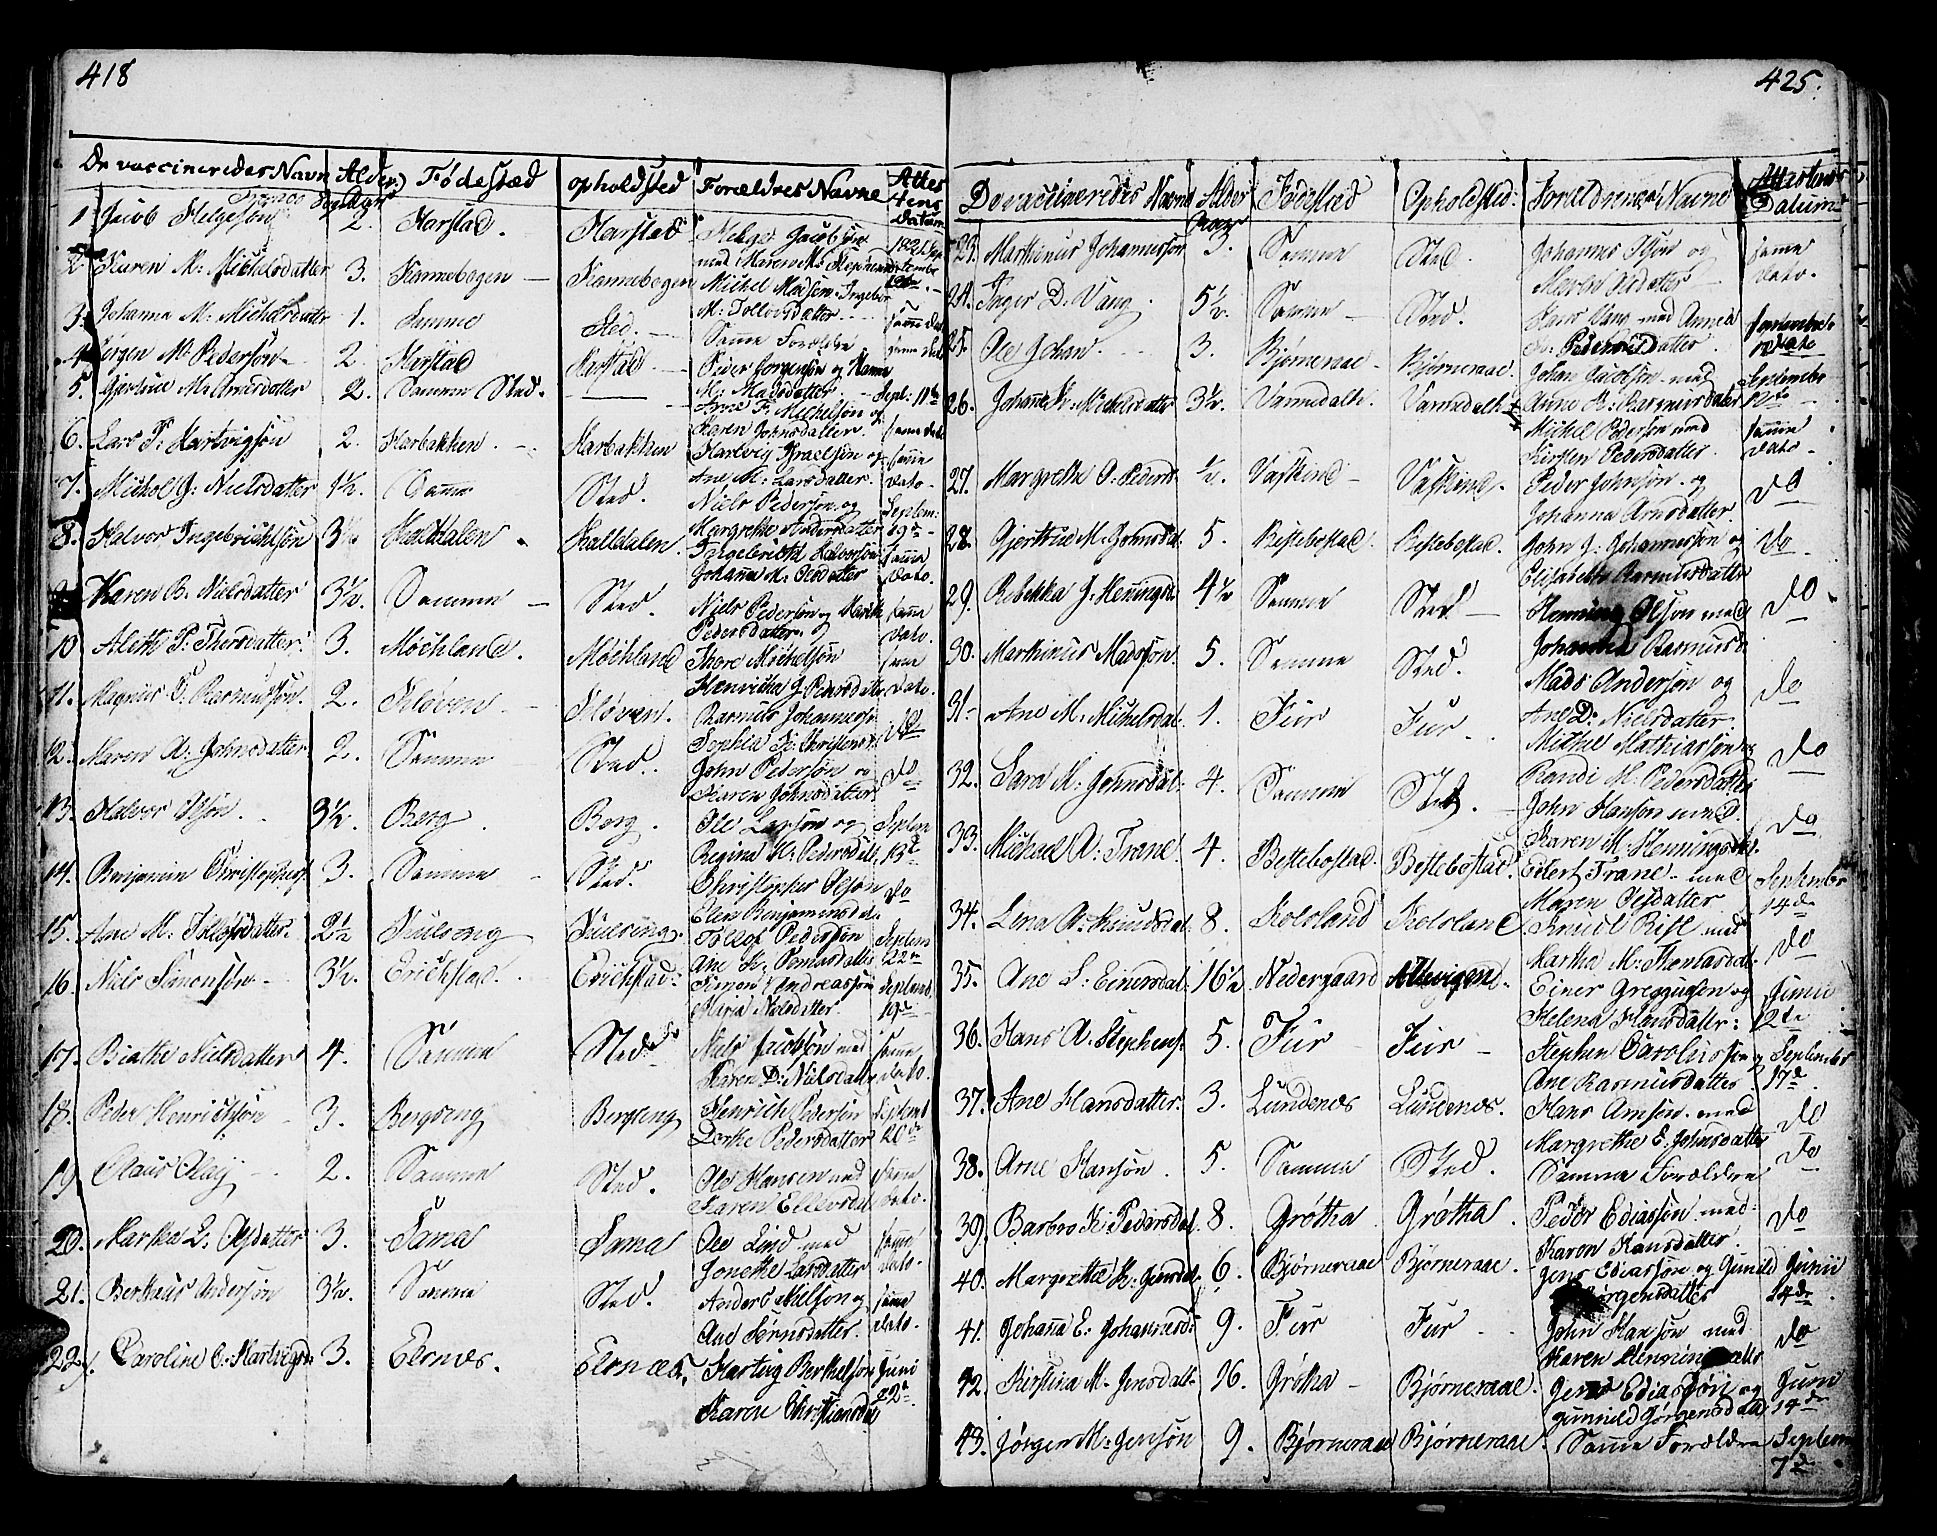 418
De vaccineredes Navn Alder Fødestæd opholdsted Forældres Navne Attestens Datum
1. Jacob Helgesøn 2. Harstad. Harstad Helge Jacobsøn med Maren
2. Karen M: Michelsdatter 3. Kannebogen Kannebogen Michel Madsen. Ingebor M: Tollevsdatter
3. Johanna M: Michelsdatter 1. Samme Sted. Samme Forældre samme Dato
4. Jørgen M: Pedersøn 2. Harstad Harstad Peder Jørgensøn og Hanna M: Madsdatter samme Dato
5. Gjertrue M: Arnesdatter 2. Samme Sted. Arne F. Michelsøn og Karen Johnsdatter. Sept: 11te
6. Lars T: Hartvigsøn 2. Harbakken. Harbakken Hartvig Israelsøn og Ane M: Larsdatter. samme Dato
7. Michel J: Nielsdatter 1½. Samme Sted. Niels Pedersøn og Margrethe Andersdatter samme Dato.
8. Halvor Ingebrichtsøn 3½ Halddalen. Ingebricht Halvorsøn Johanna M: Septem: 19de
9. Karen B. Nielsdatter 3½. Samme Sted. Niels Pedersøn og Pedersdatter. samme Dato.
10 Aleth P: Thoresdatter. 3. Møchland. Møchland Thore Michelsøn Henricha J. Pedersdatter samme Dato.
11. Magnus T. Rasmussøn. 2. Kløven Kløven. Rasmus Johanness: Sophia K: Christens: samme Dato.
12. Maren A: Johnsdatter 2. Samme Sted. John Pedersøn og Karen Johnsdatter do
13. Halvor Olsøn. 3½. Berg. Berg. Ole Larsøn og Regina K: Pedersdatt: do
14. Benjamin Christophers: 3. Samme Sted. Christopher Olsøn Elen Benjaminsdat. Septem 13de
15. Ane M. Tollefsdatter. 2½ Kulseng Kulseng. Tollof Pedersøn Ane K. do
16. Niels Simonsøn 3½. Erichstad. Erichstad: Simon Andreassøn Maria Nielsdatter Septem 22de
17. Beathe Nielsdatter 4. Samme Sted. Niels Jacobsøn med Karen D: Nielsdatter samme Dato.
18. Peder Henrichsøn 3. Bergseng Bergseng Henrich Pedersøn Dorthe Pedersdatter Septemb 20de
19. Claus 2. Samme Sted. Ole Hansen med Karen Ellevsdat samme Dato.
20. Martha L: Olsdatter 3. Sama Sama Ole Lind med Jonetha Larsdatter samme Dato.
21. Berthæus Andersøn 3½. Samme Sted. Anders Nielsøn og Ane Sørnsdatter. samme Dato.
22. Caroline C: Hartvigsd: 3. Elvnes. Elvnæs, Hartvig Berthelsøn Karen Christiansdat Juni 22d

425.
De vaccineredes Navne Alder Fødestæd Opholdsted: Forældrenes Navne Attestens Datum
23. Marthinus Johannessøn 3. Samme Sted. Johannes Olsøn og Maren samme Dato.
24. Inger D. Vang 5½. Samme Sted. Hans Vang med Anna Pedersdatter. samme Dato
25. Ole Johan. 3. Bjørneraae Bjørneraae. Johan Jacobsøn med Anne R. Rasmusdatter September 12te
26. Johanna K. Michelsdatter 3½. Vannedalh. Vannedalh. Michel Pedersøn med Kirsten Pedersdatter. samme Dato.
27. Margrethe O. Pedersd. ½. Vasskind Vasskind. Peder Johnsøn og Johanna Arnsdatter. do
28. Gjertrue M. Johnsdat. 5. Bestebostad. Bestebostad. John J: Johannessøn og Elisabeth Rasmusdatter do
29. Rebekka J. Henningsd: 4½ Samme Sted Henning Olsøn med Johanna Rasmusd: do
30. Marthinus Madssøn. 5. Samme Sted. Mads Andersøn og Ane D: Nielsdatter do
31. Ane M. Michelsdat. 1. Fur Fur. Michel Mathiassøn og Randi M. Pedersdatter do
32. Sara M. Johnsdat: 4. Samme Sted. John Hansøn med Karen M. Henningsdat. do
33. Michael A. Trane. 4. Bestebostad. Bestebostad. Edert Trane med Maren Olsdatter September 14de
34. Lena A. Knudsdat: 8. Rolsland Rolsland Knud Rist med Martha M: Thomasdat: do
35. Ane S. Einersdat: 16½ Nedergaard Einer Greggusen og Helena Hansdattr: Junii 12te
36. Hans A. Stephens: 5. Fur Fur Stephen Carolussøn og Ane Rasmusdatter September 17de
37. Ane Hansdatter. 3. Lundenes Lundenes. Hans Arnsøn med Margrethe E. Johnsdatter do
38. Arne Hansøn. 5. Samme Sted. Samme Forældre do
39. Barbro K: Pedersdat. 8. Grøtha Grøtha. Peder Ediassøn med Karen Hansdatter. do
40. Margrethe K: Jensdat. 6. Bjørneraae Bjørneraae. Jens Ediassøn og Gunild Jørgensdatter Junii 14de
41. Johanna E. Johannesd: 9. Fur Fur. John Hansøn med Karen Henningsdattr do
42. Kirstina M. Jensdatt. 16. Grøtha Bjørneraae. Jens Ediassøn og Gunnild Jørgensdatt Juni 14de
43. Jørgen M: Jensøn 9. Bjørneraae Bjørneraae. Samme Forældre Septem 7de